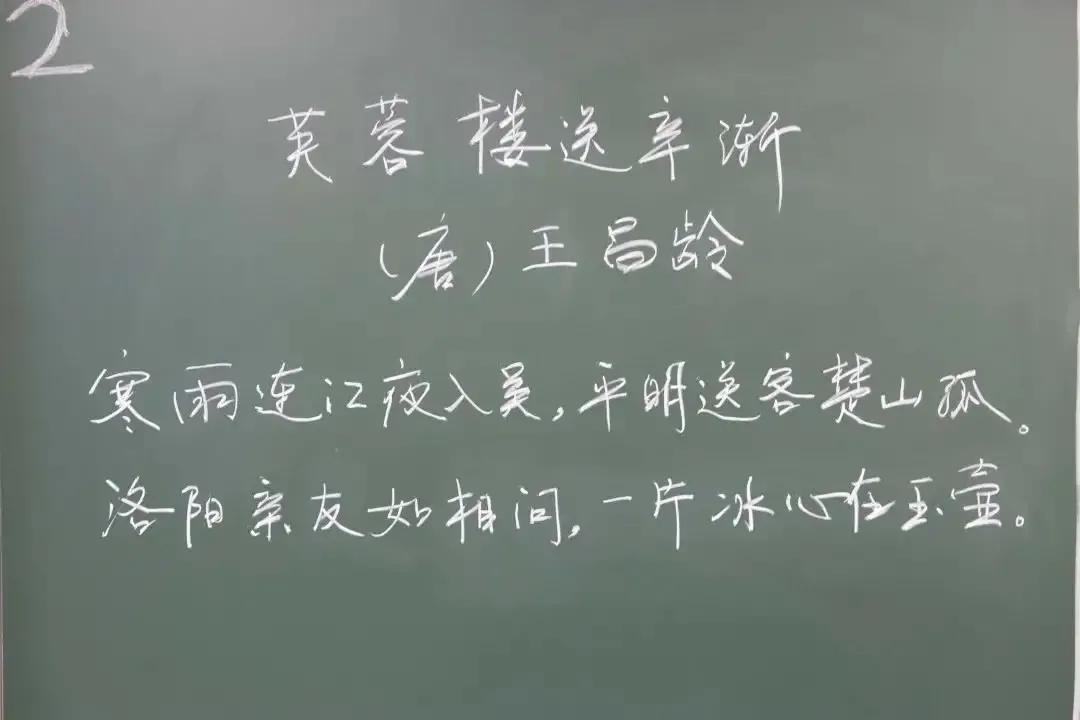 2
芙蓉楼送辛渐
(唐)王昌龄
寒雨连江夜入吴,平明送客楚山孤。
洛阳亲友如相问,一片冰心在玉壶。